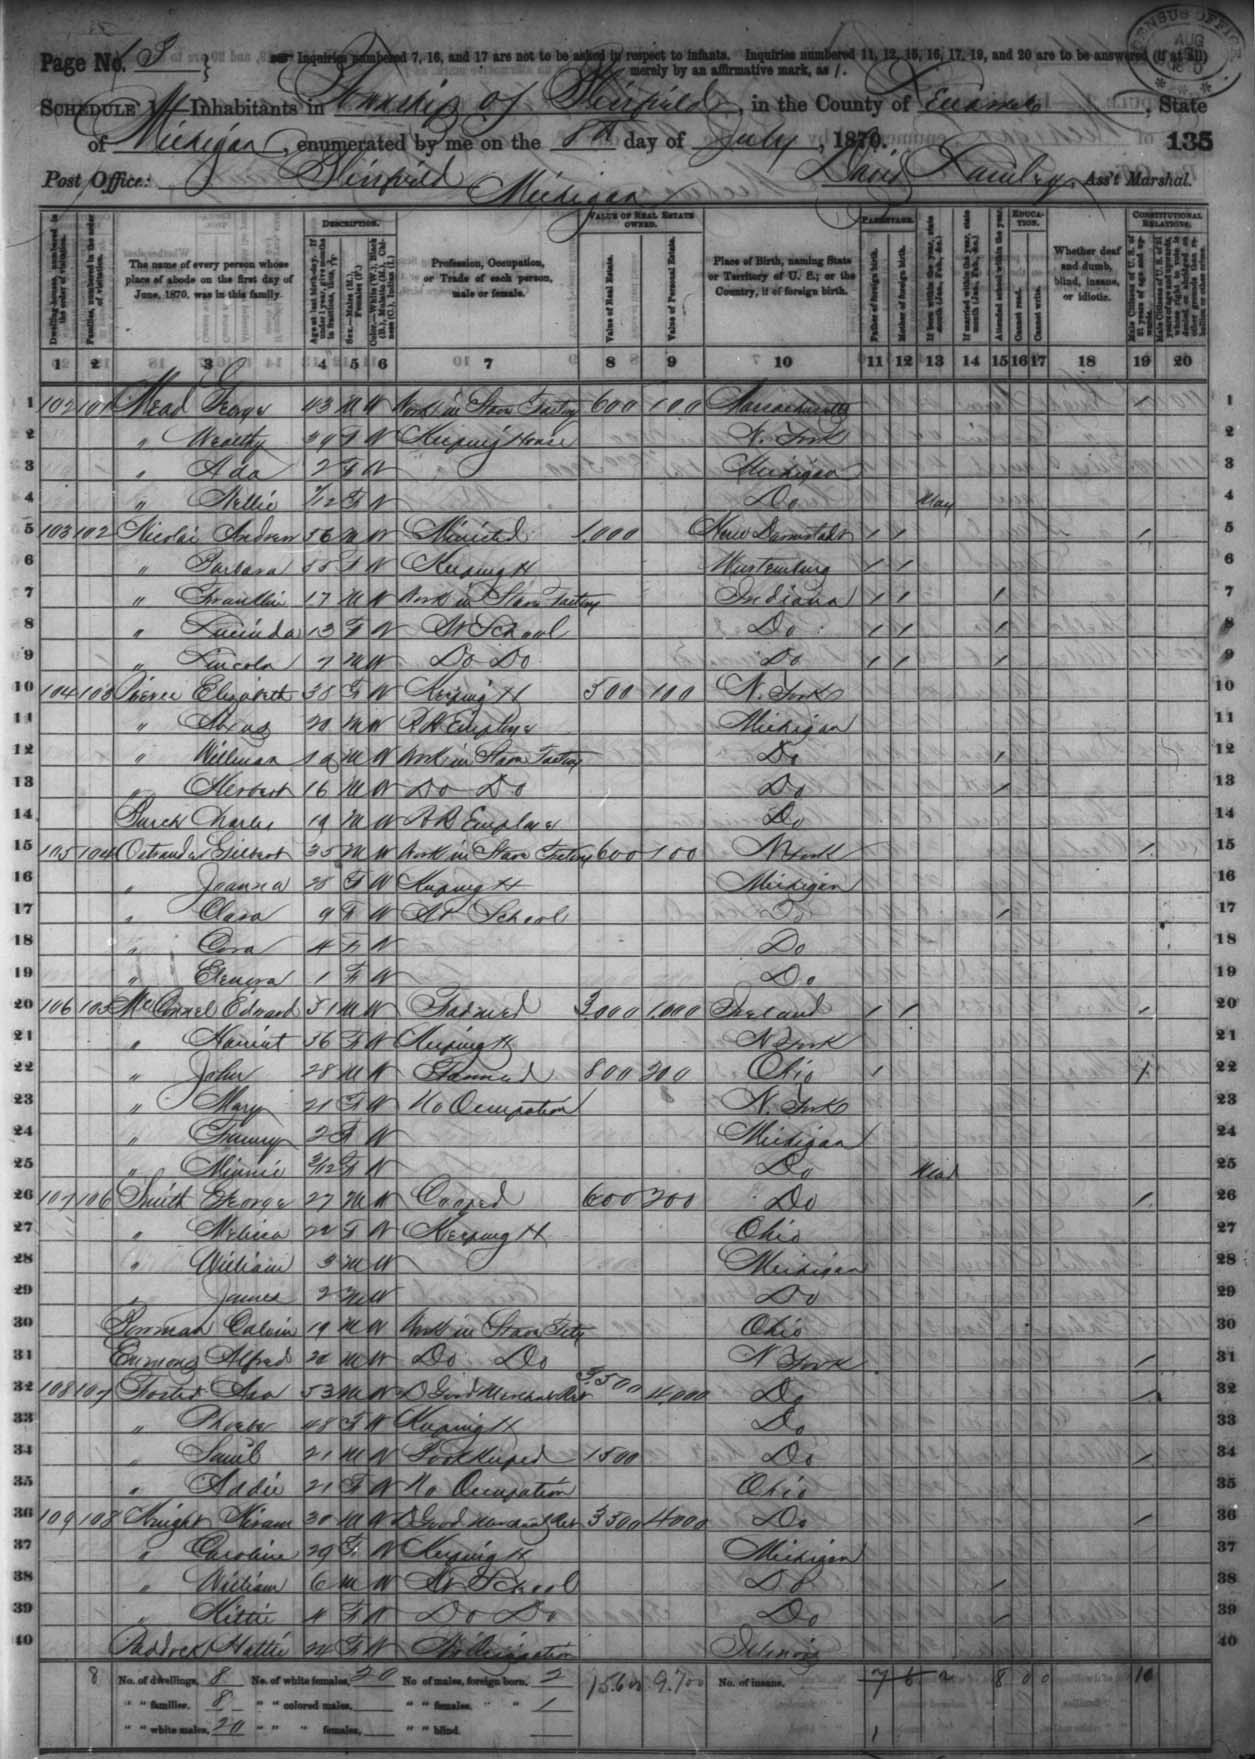 Page No. 13
Inquiries numbered 7, 16, and 17 are not to be asked in respect to infants. Inquiries numbered 11, 12, 15, 16, 17, 19, and 20 are to be answered (if at all)
merely by an affirmative mark, as /.
CENSUS OFFICE AUG
SCHEDULE 1.—Inhabitants in Township of, in the County of, State
of Michigan, enumerated by me on the 8th day of July, 1870.
135
Post Office: Michigan David, Ass't Marshal.
DESCRIPTION. VALUE OF REAL ESTATE OWNED. PARENTAGE. EDUCATION. CONSTITUTIONAL RELATIONS.
Dwelling-houses, numbered in the order of visitation.
Families, numbered in the order of visitation.
The name of every person whose place of abode on the first day of June, 1870, was in this family.
Age at last birth-day. If under 1 year, give months in fractions, thus, 3/12
Sex.—Males (M.), Females (F.)
Color.—White (W.), Black (B.), Mulatto (M.), Chinese (C.), Indian (I.)
Profession, Occupation, or Trade of each person, male or female.
Value of Real Estate.
Value of Personal Estate.
Place of Birth, naming State or Territory of U. S.; or the Country, if of foreign birth.
Father of foreign birth.
Mother of foreign birth.
If born within the year, state month (Jan., Feb., &c.)
If married within the year, state month (Jan., Feb., &c.)
Attended school within the year.
Cannot read.
Cannot write.
Whether deaf and dumb, blind, insane, or idiotic.
Male Citizens of U. S. of 21 years of age and upwards.
Male Citizens of U. S. of 21 years of age and upwards, whose right to vote is denied or abridged on other grounds than rebellion or other crime.
1 2 3 4 5 6 7 8 9 10 11 12 13 14 15 16 17 18 19 20
1 102 101 Mead George 43 M W Work in Stave Factory 600 100 Massachusetts / 1
2 " Wealthy 39 F W Keeping House N. York 2
3 " Ada 2 F W Michigan 3
4 " Nellie /12 F W Do May 4
5 103 102 Nicolai Andrew 56 M W 1,000 / / / 5
6 " Barbara 55 F W Keeping H / / 6
7 " Franklin 17 M W Work in Stave Factory Indiana / / / 7
8 " Lucinda 13 F W At School Do / / / 8
9 " Lincoln 7 M W Do Do Do / / / 9
10 104 103 Pierce Elizabeth 38 F W Keeping H 500 100 N. York 10
11 " 20 M W R R Employe Michigan 11
12 " William 18 M W Work in Stave Factory Do / 12
13 " Herbert 16 M W Do Do Do / 13
14 Burch Charles 19 M W R R Employe Do 14
15 105 104 Ostrander Gilbert 35 M W Work in Stave Factory 600 100 N York / 15
16 " Joanna 28 F W Keeping H Michigan 16
17 " Clara 9 F W At School Do / 17
18 " Cora 4 F W Do 18
19 " Elenora 1 F W Do 19
20 106 105 McConnel Edward 51 M W Farmer 3,000 1,000 Ireland / / / 20
21 " Harriet 56 F W Keeping H N York 21
22 " John 28 M W Farmer 800 200 Ohio / / 22
23 " Mary 21 F W No Occupation N. York 23
24 " 2 F W Michigan 24
25 " Minnie 3/12 F W Do 25
26 107 106 Smith George 27 M W Cooper 600 200 Do / 26
27 " Melissa 22 F W Keeping H Ohio 27
28 " William 3 M W Michigan 28
29 " James 2 M W Do 29
30 Bowman Calvin 19 M W Work in Stave Fcty Ohio 30
31 Emmons Alfred 20 M W Do Do N York / 31
32 108 107 Foster Asa 53 M W D Good Merchant Ret 5,500 4,000 Do / 32
33 " Phoebe 48 F W Keeping H Do 33
34 " Saml 21 M W Bookkeeper 1500 Do / 34
35 " Addie 21 F W No Occupation Ohio 35
36 109 108 Knight Hiram 30 M W D Good Merchant Ret 3500 4000 Do / 36
37 " Caroline 29 F W Keeping H Michigan 37
38 " William 6 M W At School Do / 38
39 " Kittie 4 F W Do Do Do / 39
40 Paddock Hattie 24 F W No Occupation Illinois 40
8 No. of dwellings, 8 No. of white females, 20 No of males, foreign born, 2 15600 9.700 No. of insane, 7 6 2 8 0 0 10
" " families, 8 " " colored males, " " females, " " 1
" " white males, 20 " " " females, " " blind. 1